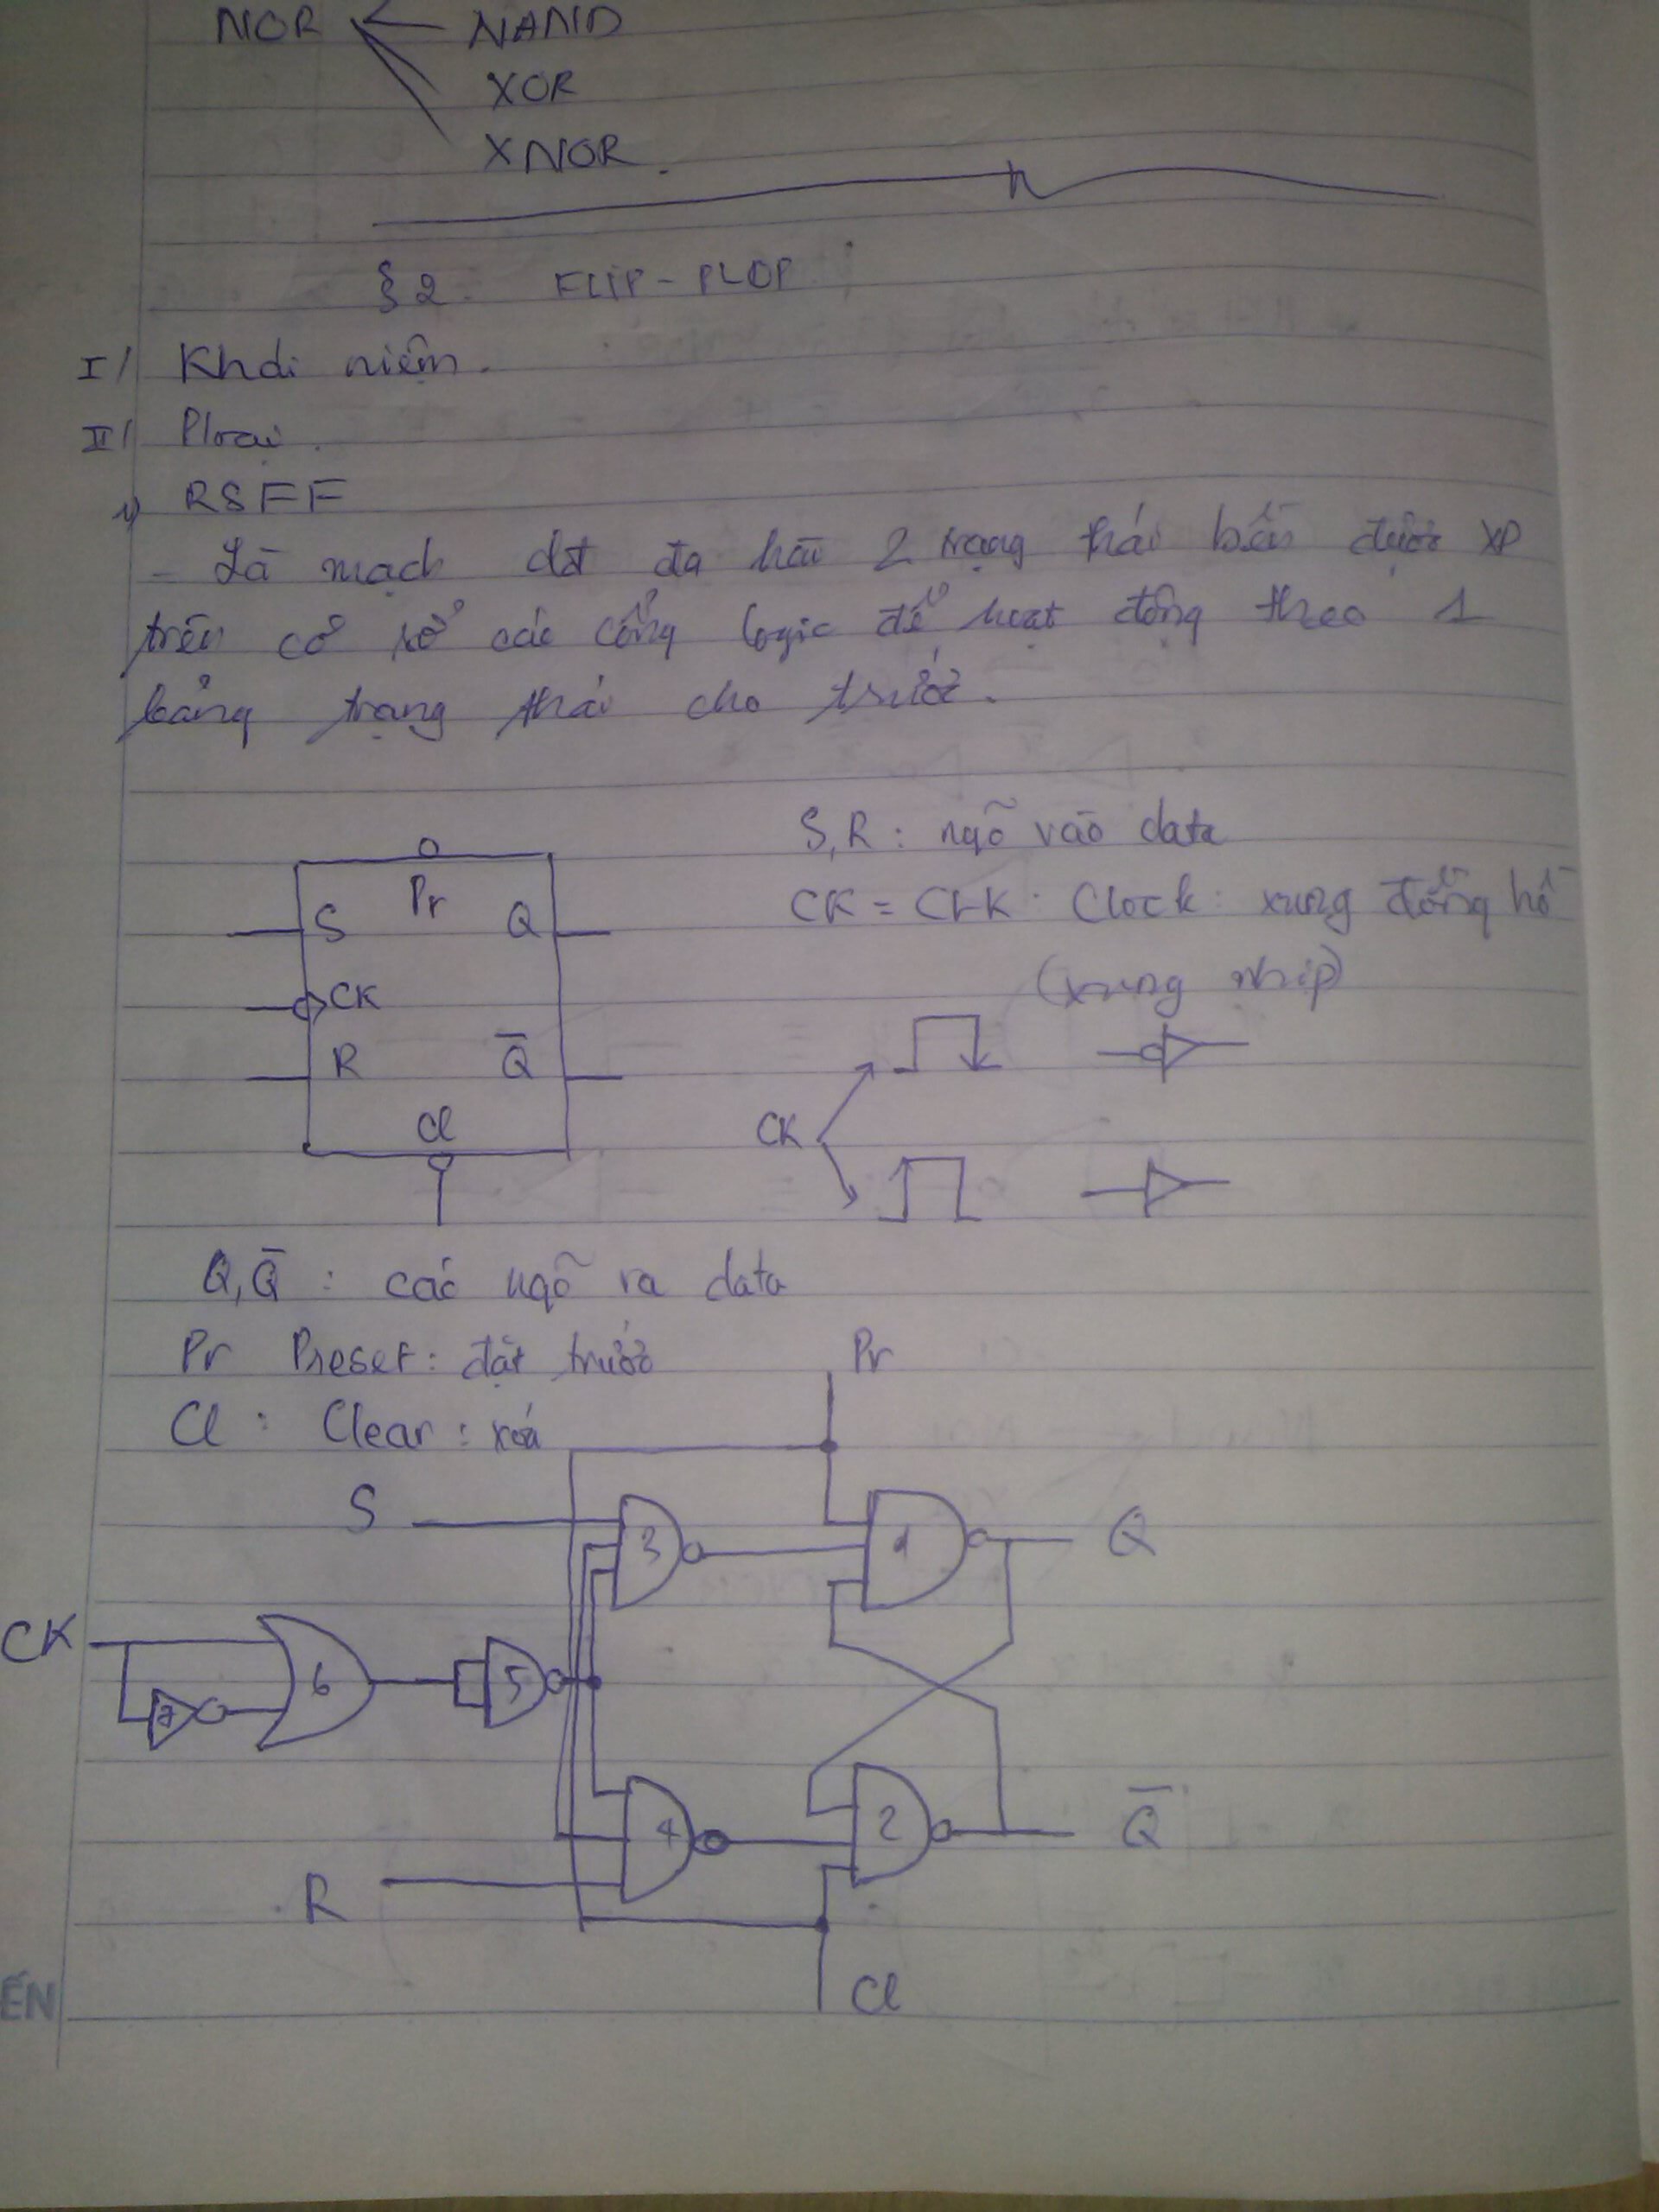 NOR NAND
XOR
XNOR.
§ 2. FLIP - PLOP
I/ Khái niệm.
II/ Ploại.
1) RSFF
- Là mạch dđ đa hài 2 trạng thái bền được XD
trên cơ sở các cổng logic để hoạt động theo 1
bảng trạng thái cho trước.
S, R : ngõ vào data
CK = CLK : Clock : xung đồng hồ
(xung nhịp)
Pr
S Q
CK
R Q̅
Cl
CK
Q, Q̅ : các ngõ ra data
Pr Preset : đặt trước
Cl : Clear : xoá
Pr
S 3 1 Q
CK 7 6 5
4 2 Q̅
R
Cl
ẾN